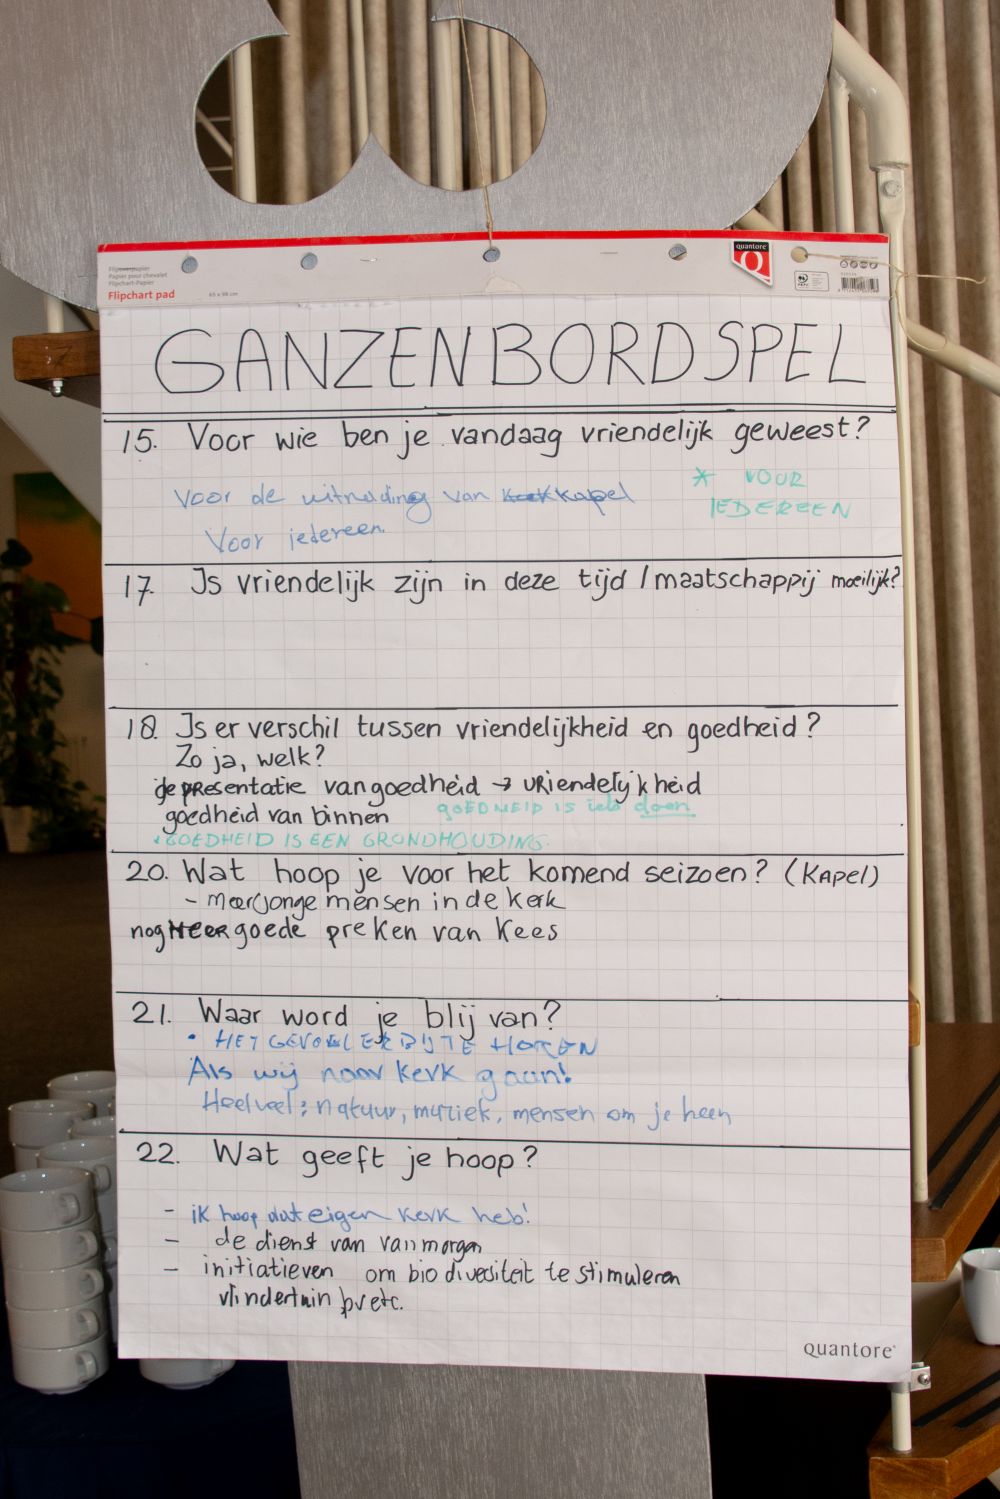 Flipoverpapier
Papier pour chevalet
Flipchart-Papier
Flipchart pad
65 x 98 cm
quantore
Q
GANZENBORDSPEL
15. Voor wie ben je vandaag vriendelijk geweest?
Voor de uitnoding van kerk kapel
* VOOR
IEDEREEN
Voor iedereen.
17. Is vriendelijk zijn in deze tijd / maatschappij moeilijk?
18. Is er verschil tussen vriendelijkheid en goedheid?
Zo ja, welk?
de presentatie van goedheid → vriendelijkheid
goedheid van binnen
GOEDHEID IS iets doen
• GOEDHEID IS EEN GRONDHOUDING.
20. Wat hoop je voor het komend seizoen? (KApel)
- meer jonge mensen in de kerk
nog MEER goede preken van Kees
21. Waar word je blij van?
• HET GEVOEL ER BIJ TE HOREN
Als wij naar kerk gaan!
Heel veel: natuur, muziek, mensen om je heen
22. Wat geeft je hoop?
- ik hoop dat eigen kerk heb!
- de dienst van vanmorgen
- initiatieven om biodiversiteit te stimuleren
vlindertuin bv etc.
quantore